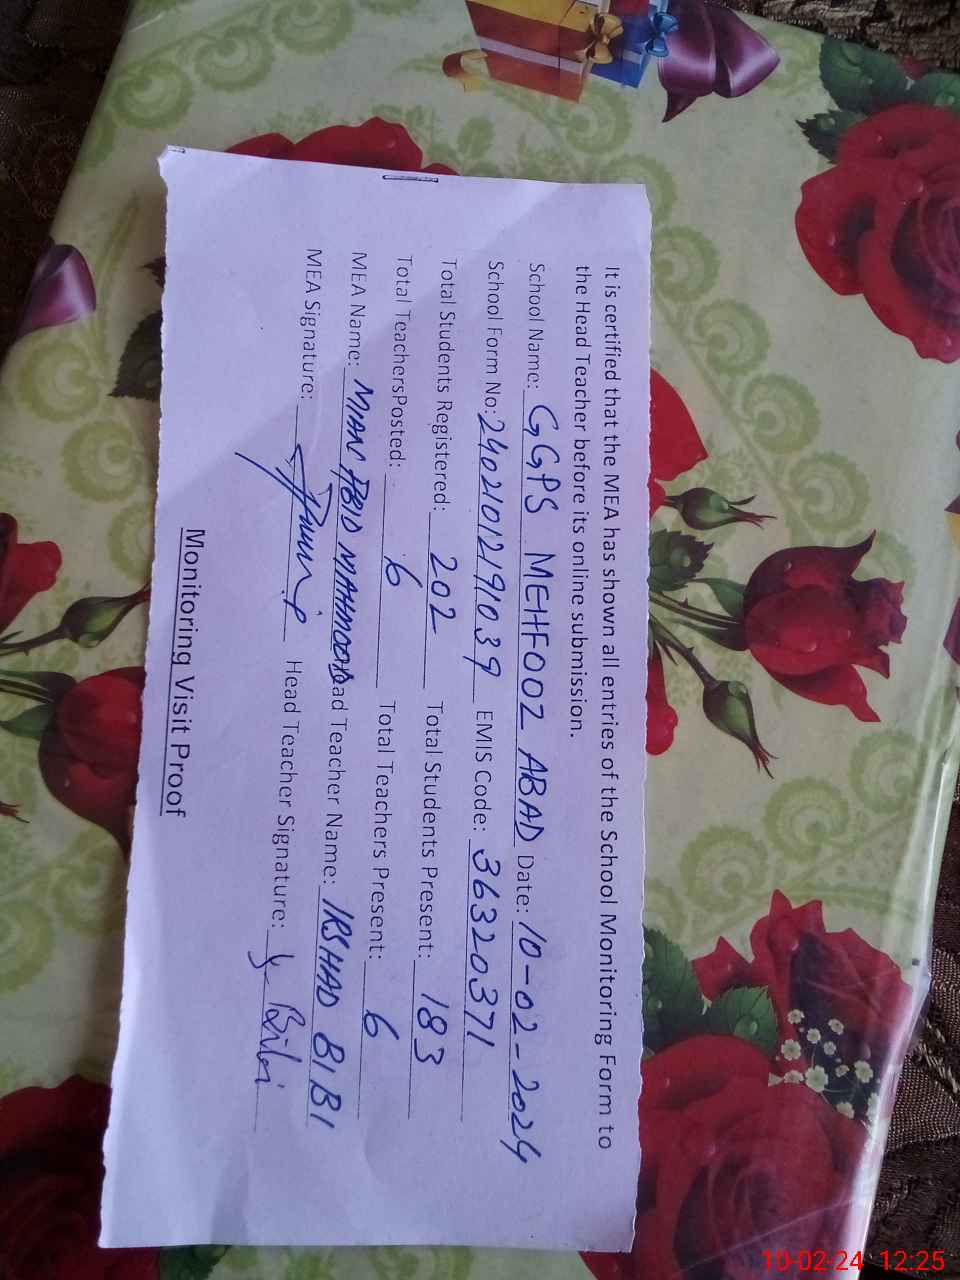 It is certified that the MEA has shown all entries of the School Monitoring Form to
the Head Teacher before its online submission.
School Name: GGPS MEHFOOZ ABAD Date: 10-02-2024
School Form No: 24021012191039 EMIS Code: 36320371
Total Students Registered: 202 Total Students Present: 183
Total TeachersPosted: 6 Total Teachers Present: 6
MEA Name: MIAN ABID MAHMOOD ad Teacher Name: IRSHAD BIBI
MEA Signature: Head Teacher Signature: Bibi
Monitoring Visit Proof
10-02-24 12:25